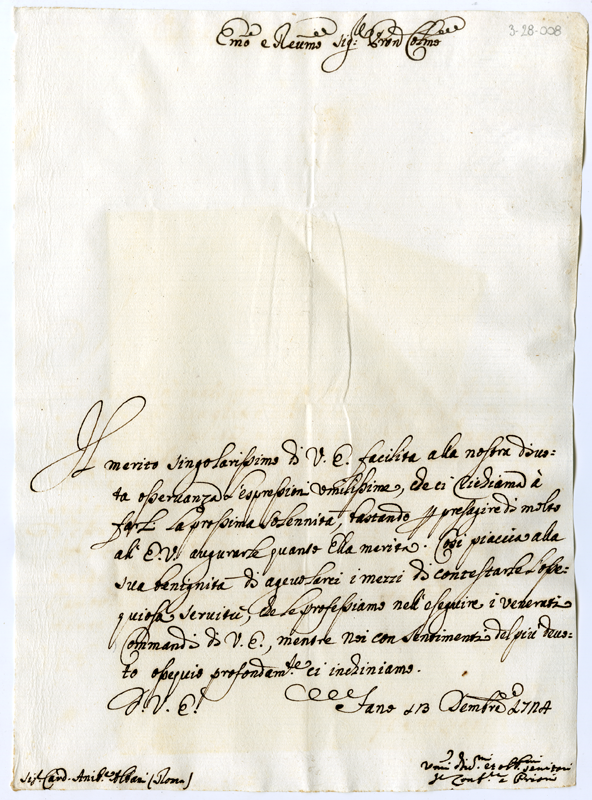 3-28-008
Emo e Reumo Sig.r Pron Colmo
Il merito singolarissimo di V. E. facilita alla nostra diuo-
ta osseruanza l'espressioni vmilissime, che ci richiediamo à
farle la prossima solennità, bastando p presagire di molto
all' E. V. augurarle quanto Ella merita. Così piaccia alla
sua benignità di ageuolarci i mezzi di contestarle l'osse-
quiosa seruitù, che le professiamo nell' eseguire i venerati
Commandi di V. E., mentre Noi con sentimenti del più deuo-
to ossequio profondam.te ci inchiniamo.
D. V. E.
Fano 13 Dembre 1714
Sig.r Card. Anib.e Albani (Roma)
Vmi Diui et obbmi seruitori
Il Conf.re e Priori